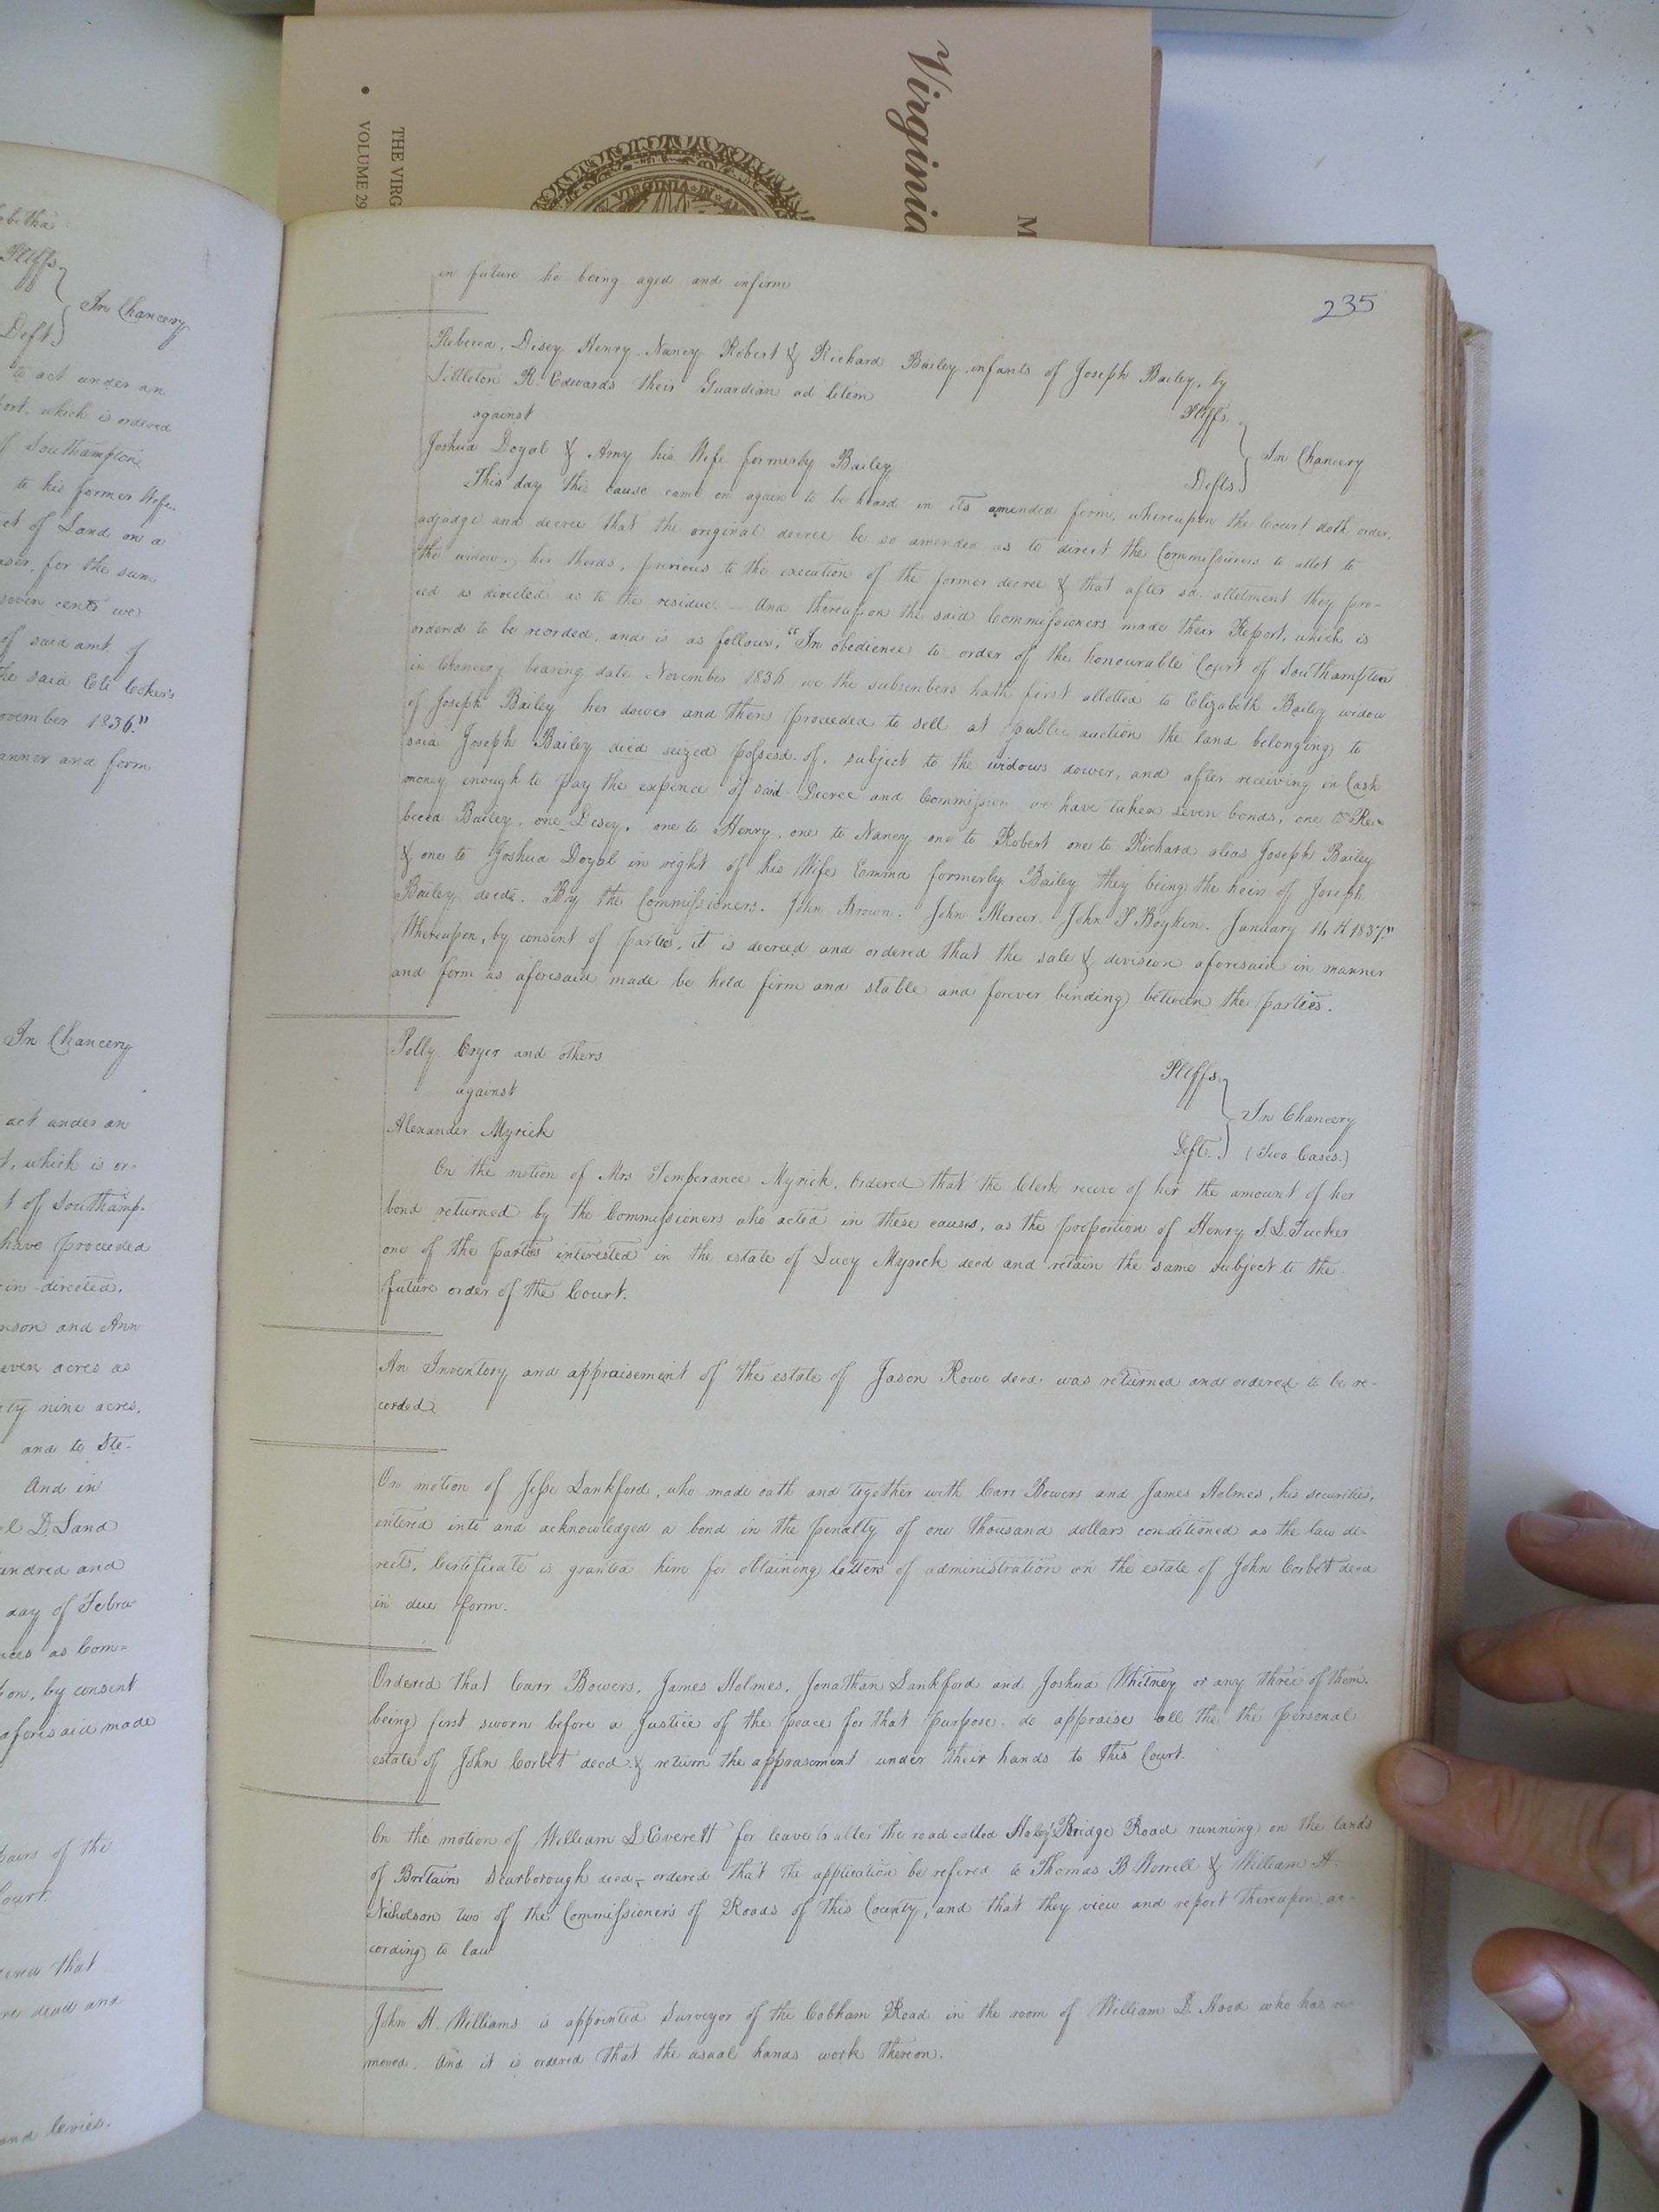 Virginia
M
THE VIRG
• VOLUME 29
VIRGINIA
betha
Pltffs
In Chancery
Deft
to act under an
ort, which is ordered
of Southampton
to his former Wife
ct of Land on a
ser, for the sum
seven cents we
of said amt. of
the said Eli Coker's
ovember 1836."
anner and form
In Chancery
act under an
t, which is or-
t of Southamp-
have proceeded
in directed.
nson and Ann
even acres as
ty nine acres,
and to Ste-
And in
l D. Land
undred and
day of Febru-
nces as Com-
on, by consent
aforesaid made
pairs of the
Court
ered that
re dead and
and levies.
235
in future he being aged and infirm
Rebecca, Desey Henry, Nancy Robert & Richard Bailey infants of Joseph Bailey, by
Littleton R. Edwards their Guardian ad litem Pltffs.
against
In Chancery
Joshua Doyal & Amy his Wife formerly Bailey Defts.
This day this cause came on again to be heard in its amended form, whereupon the Court doth order,
adjudge and decree that the original decree be so amended as to direct the Commissioners to allot to
the widow, her thirds, previous to the execution of the former decree & that after sd. allotment they pro-
ceed as directed as to the residue. And thereupon the said Commissioners made their Report, which is
ordered to be recorded, and is as follows, "In obedience to order of the honourable Court of Southampton
in Chancery bearing date November 1836 we the subscribers hath first allotted to Elizabeth Bailey widow
of Joseph Bailey her dower and then proceeded to sell at public auction the land belonging to
said Joseph Bailey died seized possesd. of, subject to the widows dower, and after receiving in Cash
money enough to pay the expence of said Decree and Commission we have taken seven bonds, one to Re-
becca Bailey, one Desey, one to Henry, one to Nancy one to Robert one to Richard alias Joseph Bailey
& one to Joshua Doyal in right of his Wife Emma formerly Bailey they being the heirs of Joseph
Bailey decd. By the Commissioners. John Brown. John Mercer. John S Boykin. January 14th 1837."
Whereupon, by consent of parties, it is decreed and ordered that the sale & division aforesaid in manner
and form as aforesaid made be held firm and stable and forever binding between the parties.
Polly Cryer and others Pltffs.
against
In Chancery
Alexander Myrick Deft. (Two Cases.)
On the motion of Mrs Temperance Myrick. Ordered that the Clerk receve of her the amount of her
bond returned by the Commissioners who acted in these causes, as the proportion of Henry S. L. Tucker
one of the parties interested in the estate of Lucy Myrick decd and retain the same subject to the
future order of the Court.
An Inventory and appraisement of the estate of Jason Rowe decd. was returned and ordered to be re-
corded.
On motion of Jesse Lankford, who made oath and together with Carr Bowers and James Holmes, his securities,
entered into and acknowledged a bond in the penalty of one thousand dollars conditioned as the law di-
rects, Certificate is granted him for obtaining letters of administration on the estate of John Corbet decd
in due form.
Ordered that Carr Bowers, James Holmes, Jonathan Lankford and Joshua Whitney or any three of them,
being first sworn before a Justice of the peace for that purpose, do appraise all the the personal
estate of John Corbet decd. & return the apprasement under their hands to this Court.
On the motion of William S Everett for leave to alter the road called Haley's Bridge Road running on the lands
of Britain Scarborough decd, ordered that the application be refered to Thomas B Worrell & William H.
Nicholson two of the Commissioners of Roads of this County, and that they view and report thereupon ac-
cording to law
John H. Williams is appointed Surveyor of the Cobham Road in the room of William D. Hood who has re-
moved. And it is ordered that the usual hands work thereon.